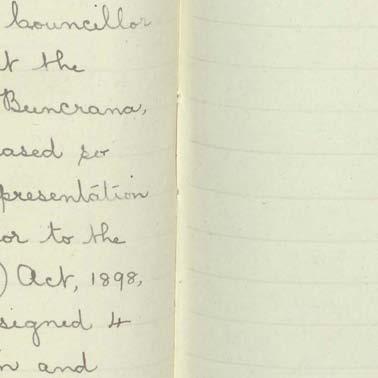 Councillor
at the
Buncrana,
ased so
presentation
or to the
) Act, 1898,
signed 4
n and